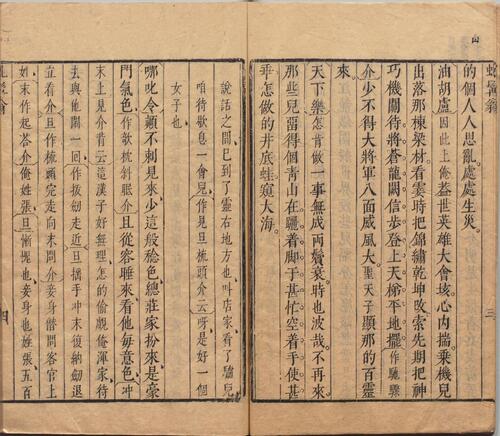 的個人人思亂處處生災
油胡盧因此上俺葢世英雄大會垓心內揣乗機兒
出落那棟梁材看雲時把錦繡乾坤攺索先期把神
巧機關待將蒼龍闕信步登上天梯平地擺作騁驟
介少不得大將軍八面威風大聖天子顯那的百靈
來
天下樂怎肯做一事無成兩鬢衰時也波哉不再來
那些兒畱得個青山在纏着脚于甚忙空着手使甚
乖怎做的井底蛙窺大海
說話之間已到了靈右地方也叫店家看了驢兒
咱待歇息一會兒作見旦梳頭介云呀是好一個
女子也
哪吒令頓不刺見來少這般稔色總莊家扮來是豪
門氣色作欹枕斜眂介且從容睡來看他毎意色冲
末上見介看云這漢子好無理怎的偷覷俺渾家待
去與他鬭一囘作拔劒走近旦揺手冲末復納劒退
立介旦作梳頭完走向末問介妾身借問客官上
姓末作起答介俺姓張旦慚愧也妾身也姓張五百
三
四